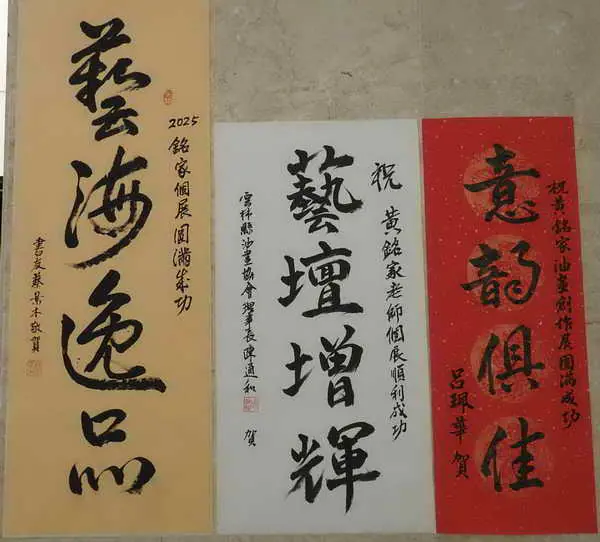 2025 銘家個展圓滿成功
藝海逸品
書友蔡景木敬賀
祝 黃銘家老師個展順利成功
藝壇增輝
雲林縣油畫協會理事長陳通和 賀
祝黃銘家油畫創作展圓滿成功
意韵俱佳
呂珮華賀